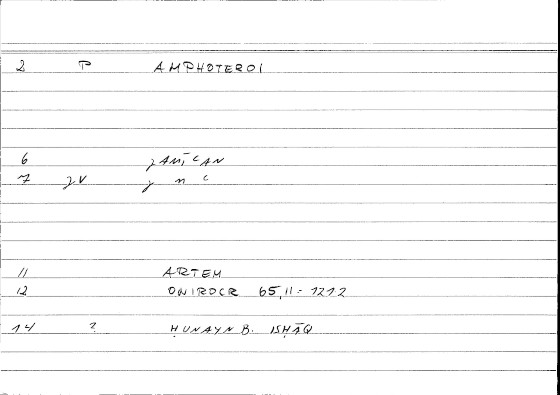 2 P AMPHOTEROI
6 ǧAMĪʿAN
7 ǧV ǧ m ʿ
11 ARTEM
12 ONIROCR 65,11 - 1212
14 ? ḤUNAYN B. ISḤĀQ